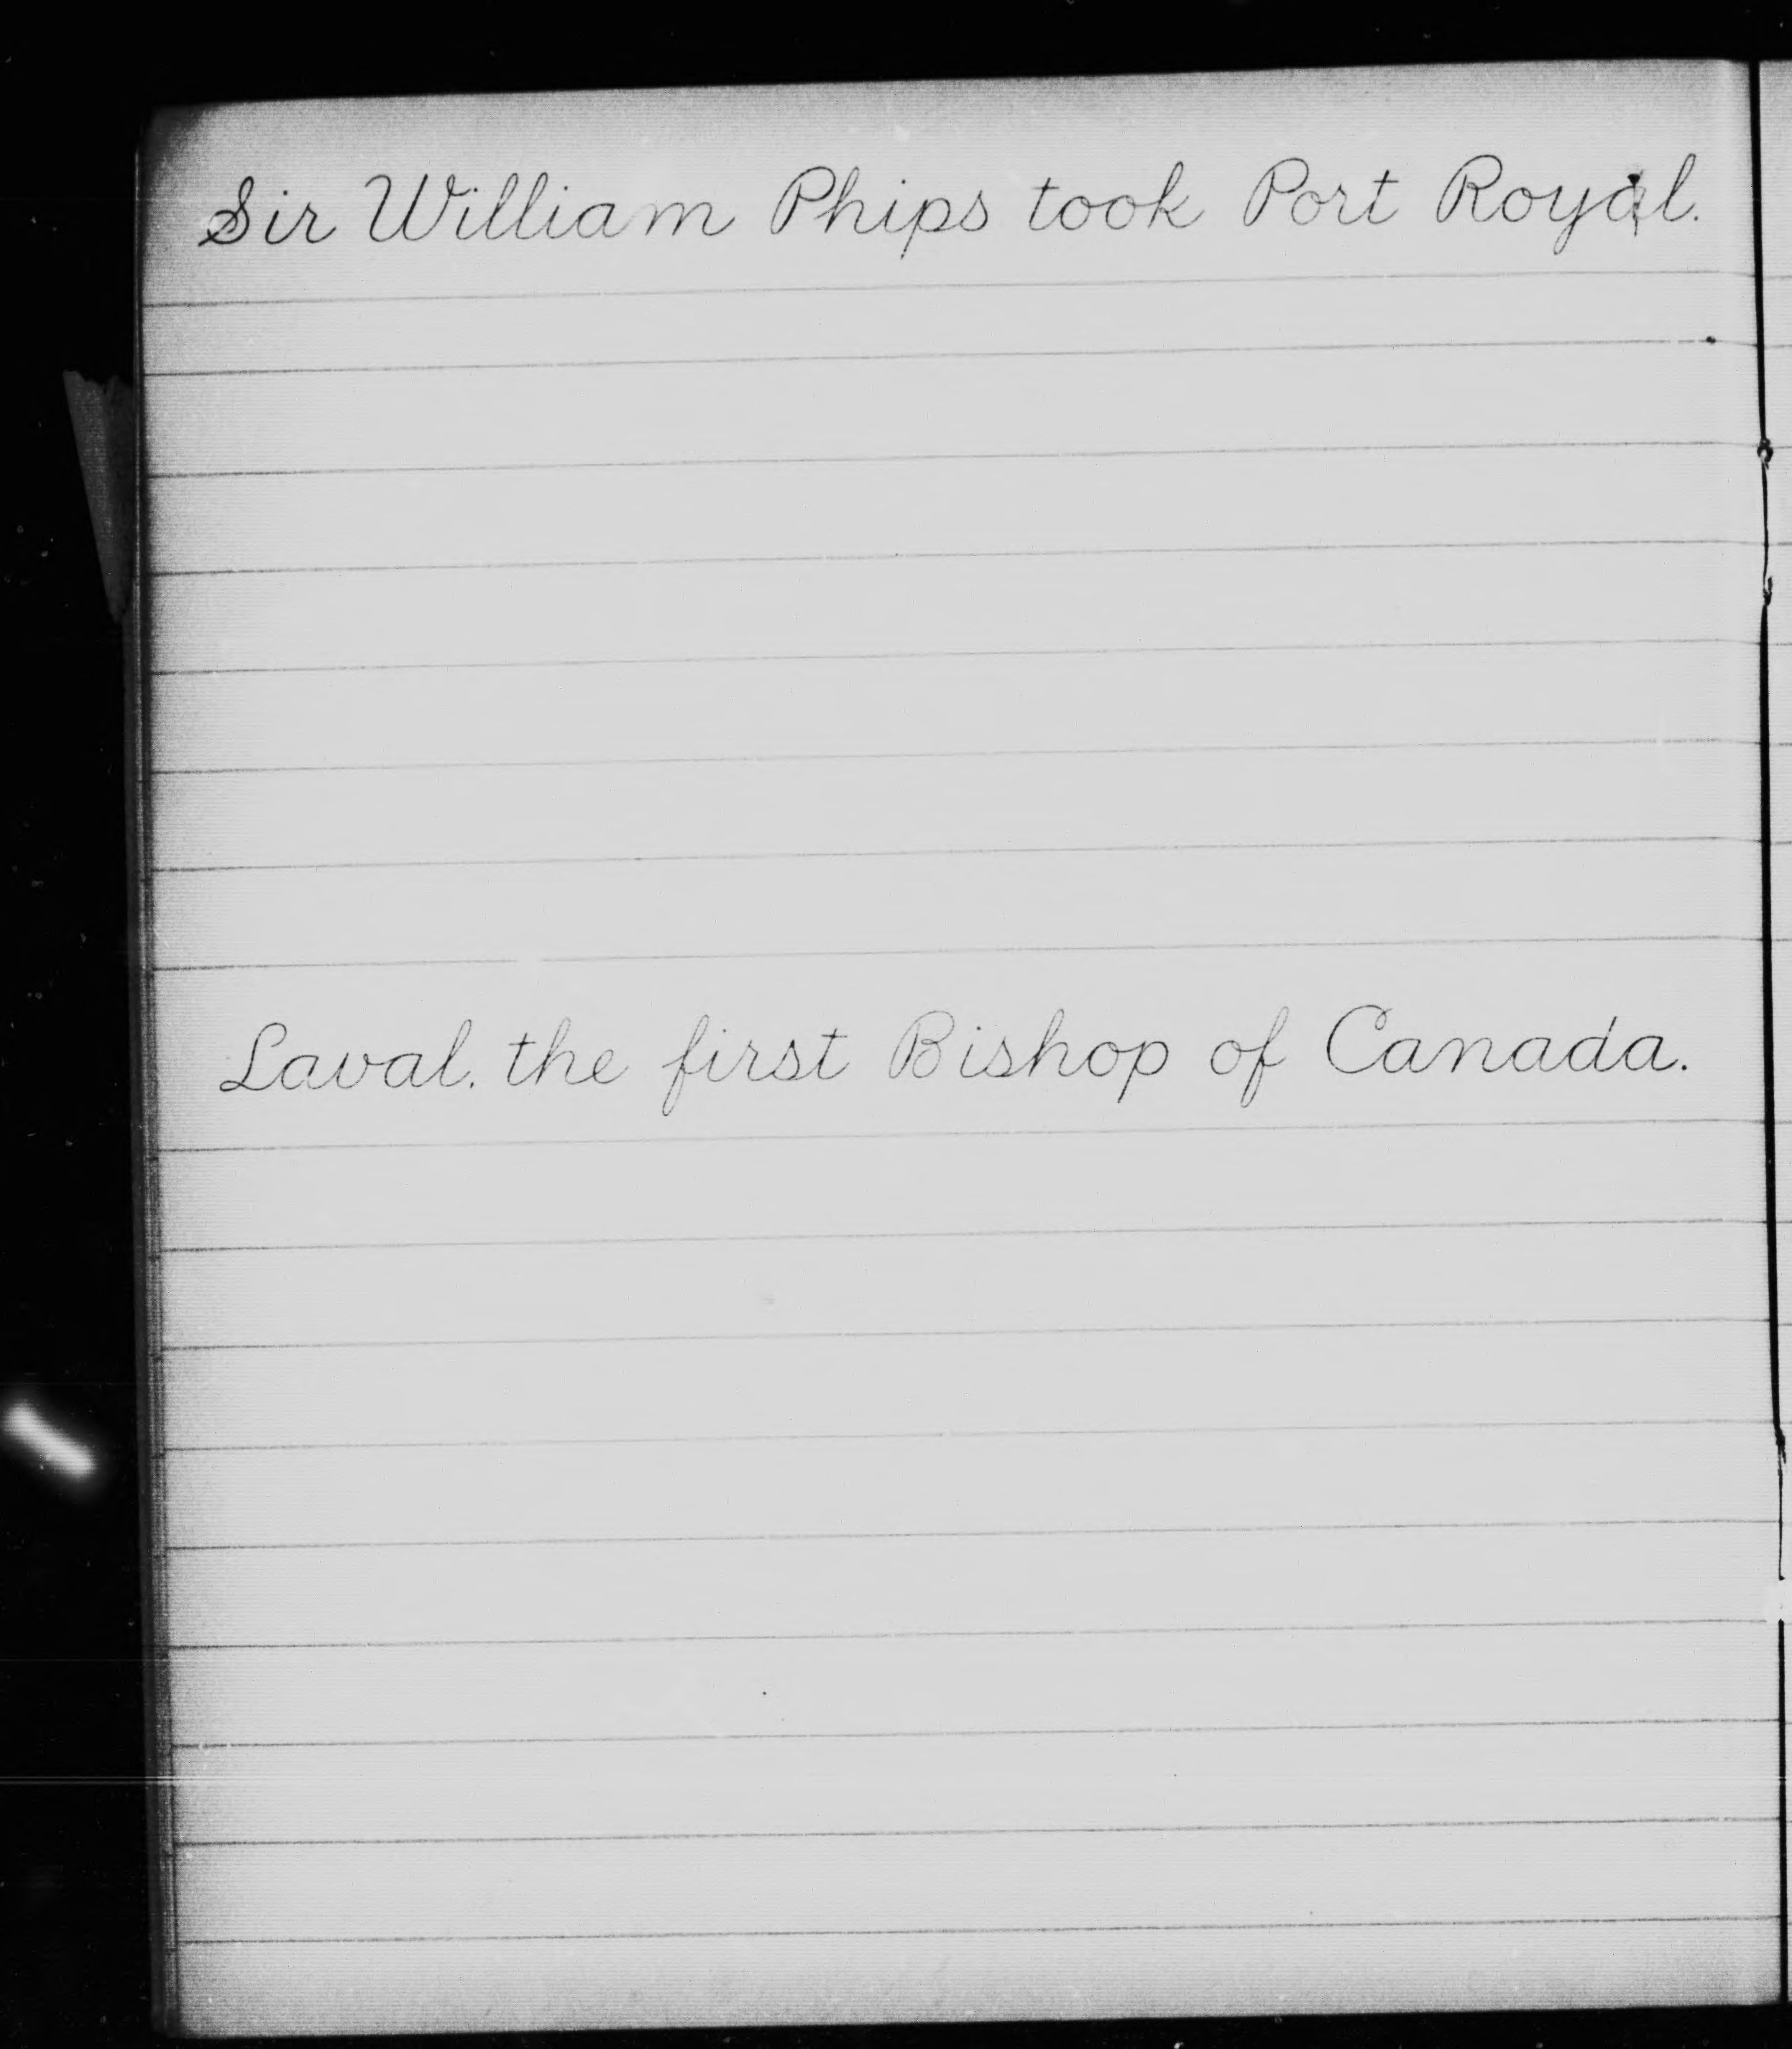 Sir William Phips took Port Royal.
Laval. the first Bishop of Canada.